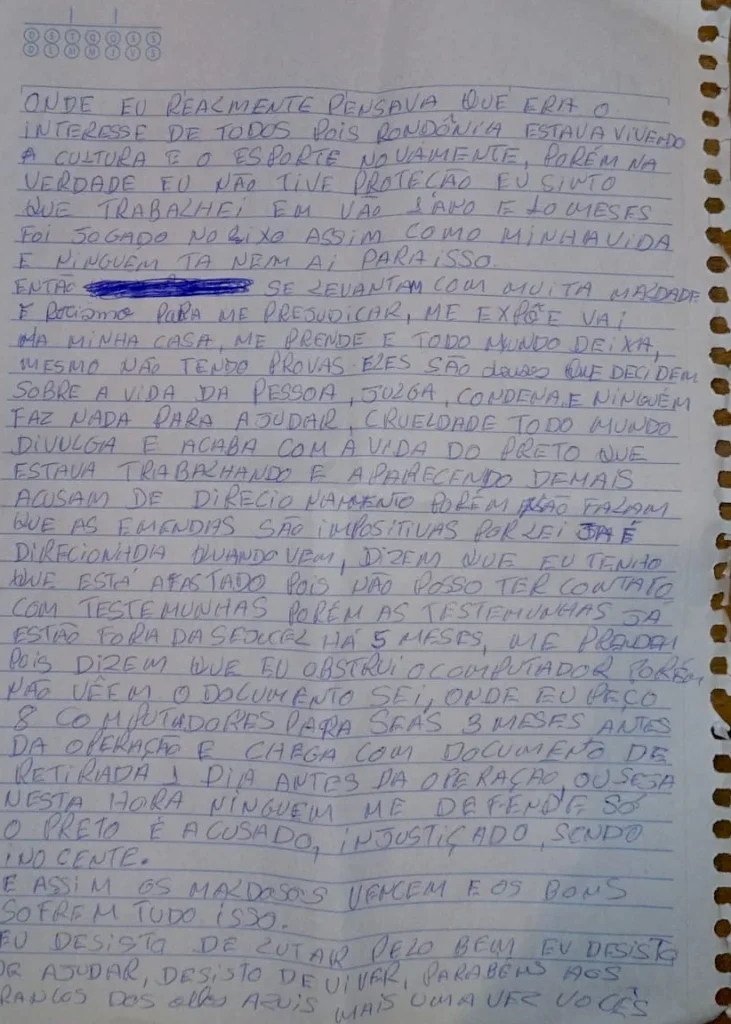 D S T Q Q S S
D L M M J V S
ONDE EU REALMENTE PENSAVA QUE ERA O
INTERESSE DE TODOS POIS RONDÔNIA ESTAVA VIVENDO
A CULTURA E O ESPORTE NOVAMENTE, PORÉM NA
VERDADE EU NÃO TIVE PROTEÇÃO EU SINTO
QUE TRABALHEI EM VÃO 1 ANO E 10 MESES
FOI JOGADO NO LIXO ASSIM COMO MINHA VIDA
E NINGUEM TA NEM AI PARA ISSO.
ENTÃO SE LEVANTAM COM MUITA MALDADE
E RACISMO PARA ME PREJUDICAR, ME EXPÕE VAI
NA MINHA CASA, ME PRENDE E TODO MUNDO DEIXA,
MESMO NÃO TENDO PROVAS. ELES SÃO deuses QUE DECIDEM
SOBRE A VIDA DA PESSOA, JULGA, CONDENA E NINGUÉM
FAZ NADA PARA AJUDAR, CRUELDADE TODO MUNDO
DIVULGA E ACABA COM A VIDA DO PRETO QUE
ESTAVA TRABALHANDO E APARECENDO DEMAIS
ACUSAM DE DIRECIONAMENTO PORÉM NÃO FALAM
QUE AS EMENDAS SÃO IMPOSITIVAS POR LEI JÁ É
DIRECIONADA QUANDO VEM, DIZEM QUE EU TENHO
QUE ESTÁ AFASTADO POIS NÃO POSSO TER CONTATO
COM TESTEMUNHAS PORÉM AS TESTEMUNHAS JA
ESTÃO FORA DA SEJUCEL HÁ 5 MESES, ME PRENDEM
POIS DIZEM QUE EU OBSTRUI O COMPUTADOR PORÉM
NÃO VÊEM O DOCUMENTO SEI, ONDE EU PEÇO
8 COMPUTADORES PARA SEAS 3 MESES ANTES
DA OPERAÇÃO E CHEGA COM DOCUMENTO DE
RETIRADA 1 DIA ANTES DA OPERAÇÃO, OU SEJA
NESTA HORA NINGUEM ME DEFENDE SÓ
O PRETO É ACUSADO, INJUSTIÇADO, SENDO
INOCENTE.
E ASSIM OS MALDOSOS VENCEM E OS BONS
SOFREM TUDO ISSO.
EU DESISTO DE LUTAR PELO BEM EU DESISTO
DE AJUDAR, DESISTO DE VIVER, PARABÉNS AOS
RANCOS DOS olhos AZUIS MAIS UMA VEZ VOCÊS